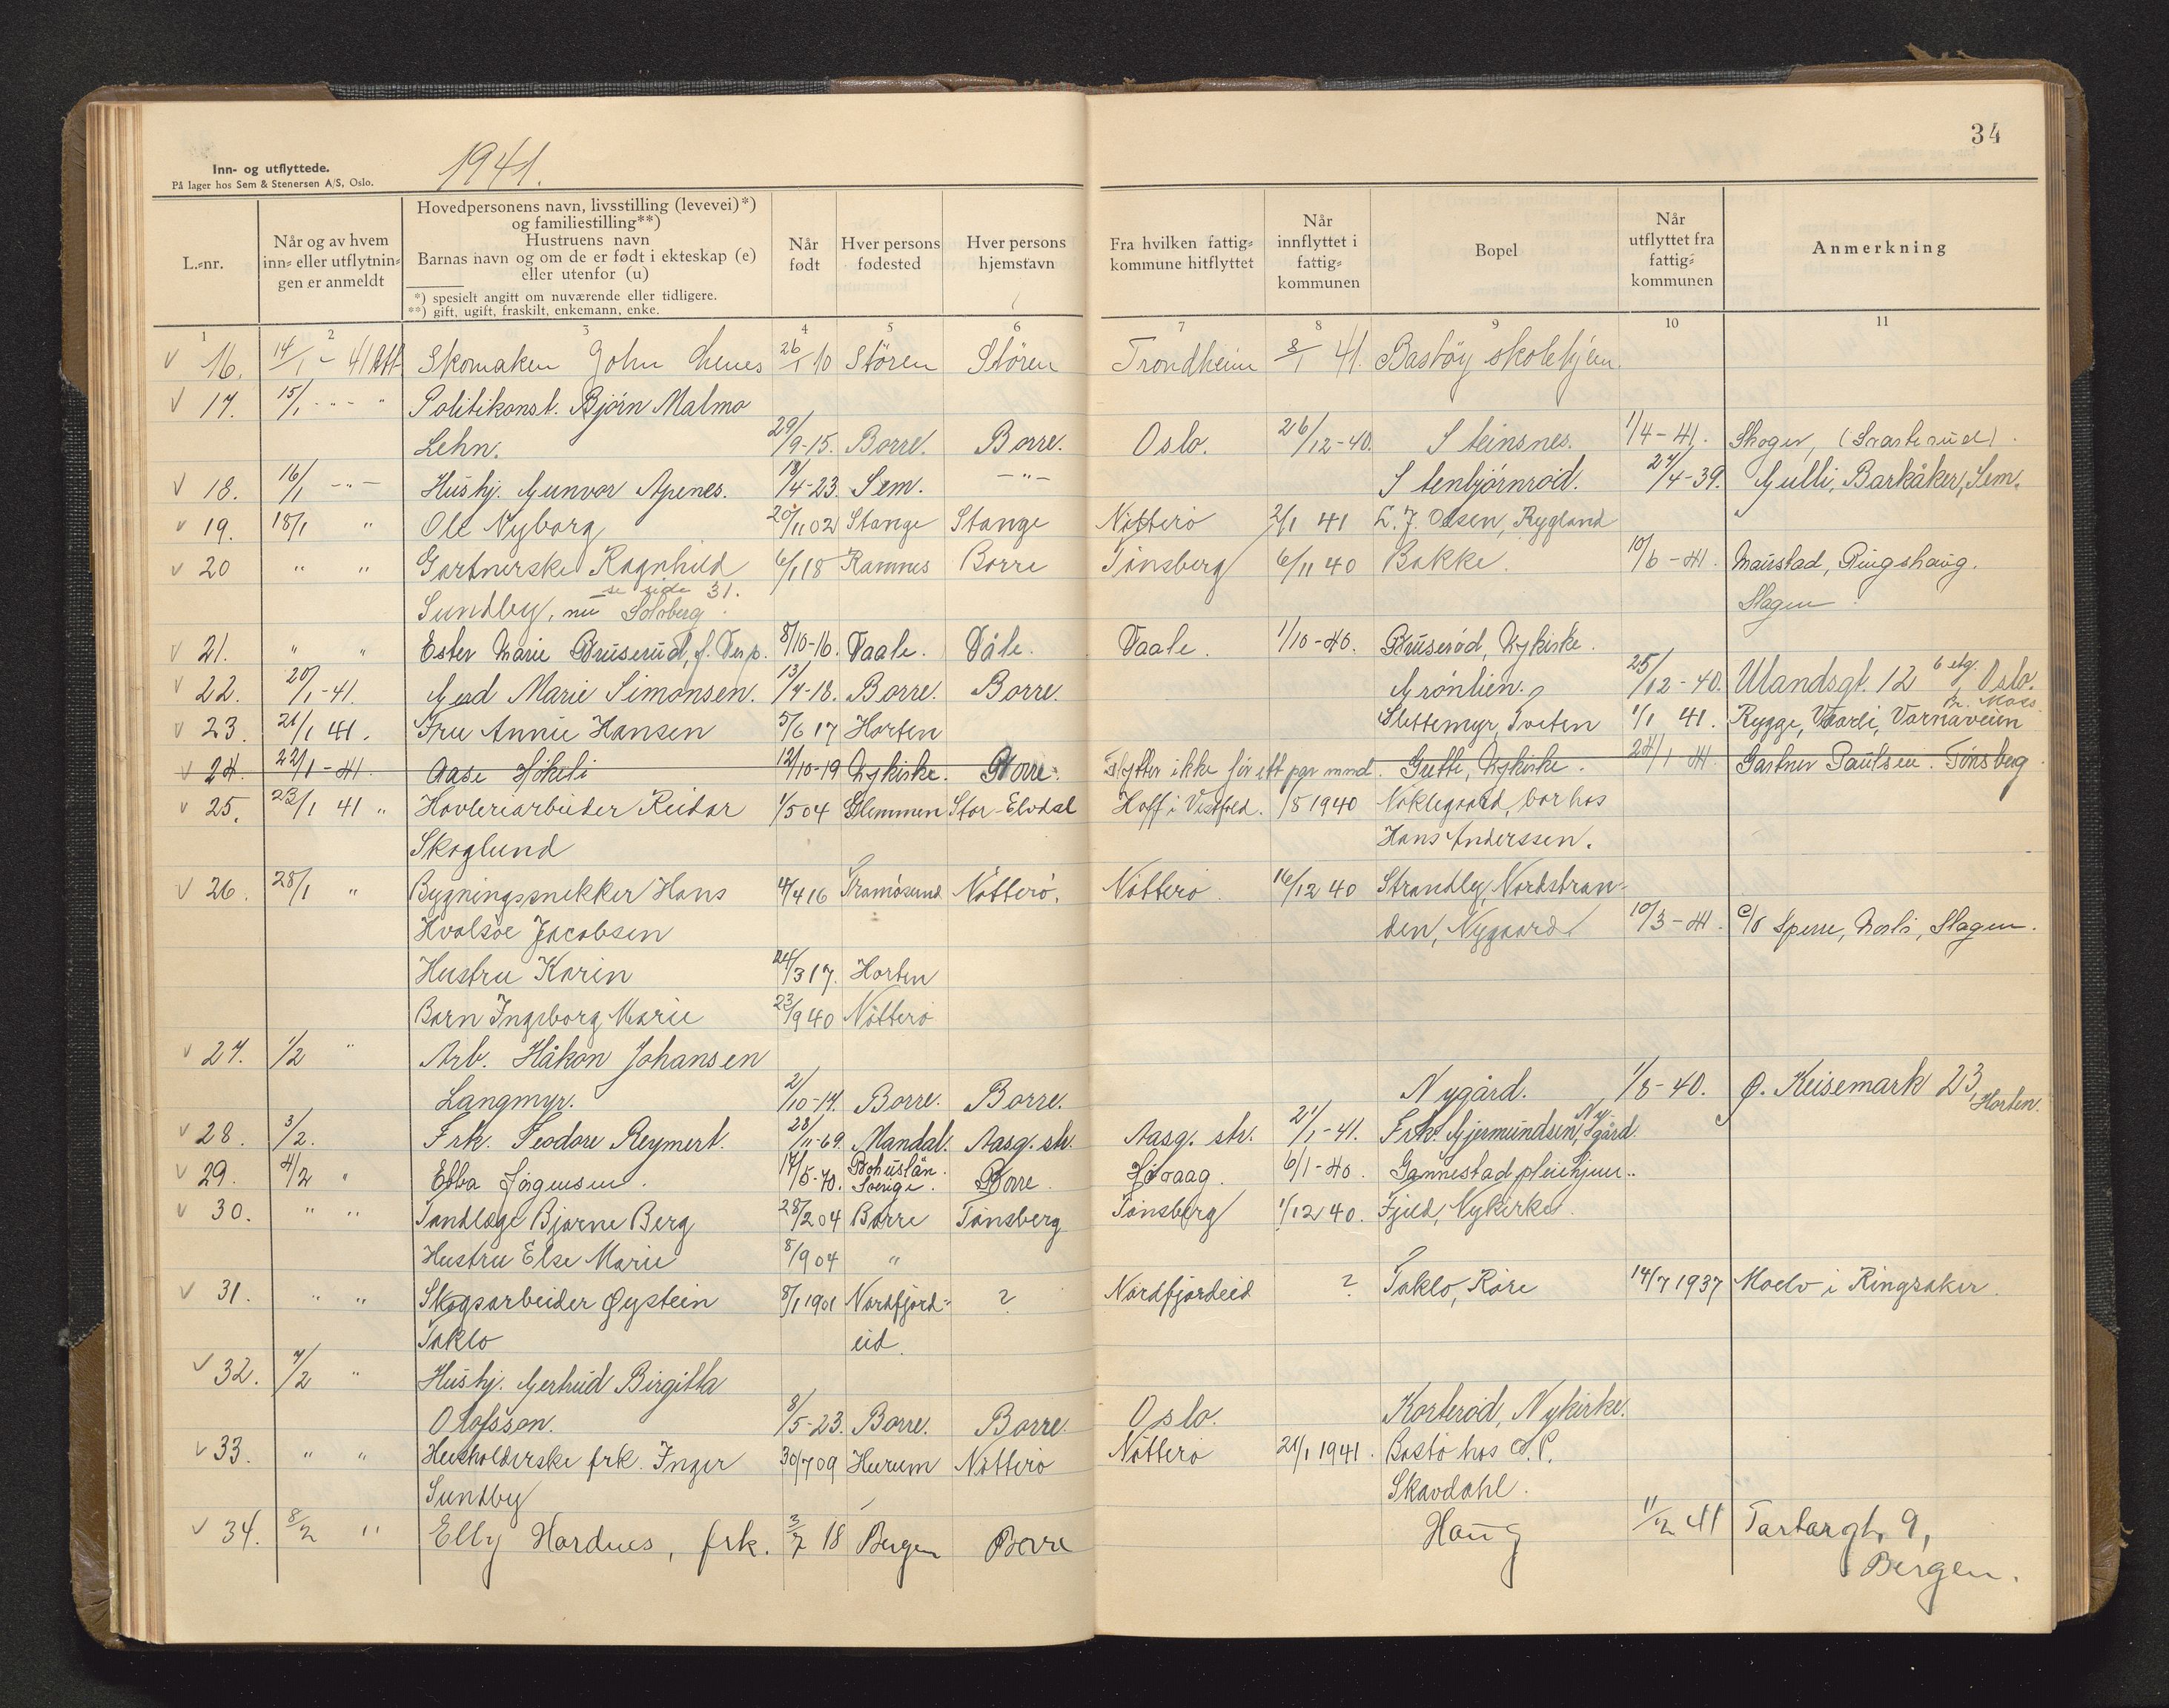 34
Inn- og utflyttede.
På lager hos Sem & Stenersen A/S, Oslo.
1941.
L.-nr.
Når og av hvem inn- eller utflytnin- gen er anmeldt
Hovedpersonens navn, livsstilling (levevei)*)
og familiestilling**)
Hustruens navn
Barnas navn og om de er født i ekteskap (e)
eller utenfor (u)
*) spesielt angitt om nuværende eller tidligere.
**) gift, ugift, fraskilt, enkemann, enke.
Når født
Hver persons fødested
Hver persons hjemstavn
Fra hvilken fattig- kommune hitflyttet
Når innflyttet i fattig- kommunen
Bopel
Når utflyttet fra fattig- kommunen
Anmerkning
1 2 3 4 5 6 7 8 9 10 11
16. 14/1 - 41 Skomaker John 26/1 10 Stören Stören Trondheim 8/1 41. Bastöy skolehjem.
17. 15/1 - " - " Politikonst. Bjørn Malmo
Lehn. 29/9-15. Borre. Borre. Oslo. 26/12-40. Steinsnes. 1/4-41. Skoger,
18. 16/1 - " - Hushj. Gunvor Apenes. 18/4-23. Sem. - " - Stenbjørnrød. 24/4-39. Gulli, Barkåker, Sem.
19. 18/1 " Ole Nyborg 20/11 02 Stange Stange Nötterö 2/1 41 L. J. Olsen, Rygland
20 " " Gartnerske Ragnhild 6/1 18 Ramnes Borre Tönsberg 6/11 40 Bakke. 10/6-41. Ringshaug.
se side 31.
Sundby, nu Solberg. Slagen
21. " " Ester Marie Bruserud, f. 8/10-16. Vaale. Våle. Vaale. 1/10-40. Bruserød, Nykirke.
22. 20/1-41. Gerd Marie Simonsen. 13/4-18. Borre. Borre. Grønlien. 25/12-40. Ulandsgt. 12 6 etg. Oslo.
23. 21/1 41. Fru Annie Hansen 5/6 17 Horten Slettemyr, Tveten 1/1 41. Rygge, Vaarli, Varnaveien Pr. Moss.
24. 22/1-41. Aase Hökeli 12/10-19 Nykirke. Borre. Flytter ikke før ett par mnd. Gutte, Nykirke. 24/1 41. Gartner Paulsen. Tønsberg
25. 23/1 41 " Hövleriarbeider Reidar 1/5 04 Glemmen Stor-Elvdal Hoff i Vestfold. /5 1940 Nöklegaard, bor hos
Skoglund Hans Anderssen.
26. 28/1 " Bygningssnekker Hans 4/4 16 Tromösund Nötterö. Nötterö 16/12 40 Strandly, Nordstran-
Hvalsöe Jacobsen den, Nygaard 10/3-41. c/o Sperre, Slagen.
Hustru Karin 24/3 17. Horten
Barn Ingeborg Marie 23/9 40 Nötterö
27. 1/2 " Arb. Håkon Johansen
Langmyr. 2/10-14. Borre. Borre. Nygård. 1/8-40. Ø. Keisemark 23, Horten.
28. 3/2. Frk. Teodore Reymert. 28/11-69. Mandal. Aasg. str. Aasg. str. 21/1-41. Frk. Gjermundsen, Ny- gård
29. 4/2 " Ebba Jörgensen. 17/5-70. Bohuslän. Sverige. Borre. Hövaag. 6/1-40. Gannestad pleiehjem.
30. " " Tandlæge Bjarne Berg 28/2 04 Borre Tönsberg Tönsberg 1/12 40. Fjeld, Nykirke.
Hustru Else Marie 8/9 04 "
31. " " Skogsarbeider Øystein 8/1 1901 Nordfjord- ? Nordfjordeid ? Taklo, Röre 14/7 1937 Moelv i Ringsaker.
Taklo eid.
32. 7/2 " Hushj. Gertrud Birgitta
Olofsson. 8/5-23. Borre. Borre. Oslo. Korterød, Nykirke.
33. " " Husholderske frk. Inger 30/7 09 Hurum Nötterö Nötterö 21/1 1941. Bastö hos O. P.
Sundby Skavdahl.
34. 8/2 " Elly Hardnes, frk. 3/7 18 Bergen Borre Haug 11/2 41 Tartargt. 9,
Bergen.